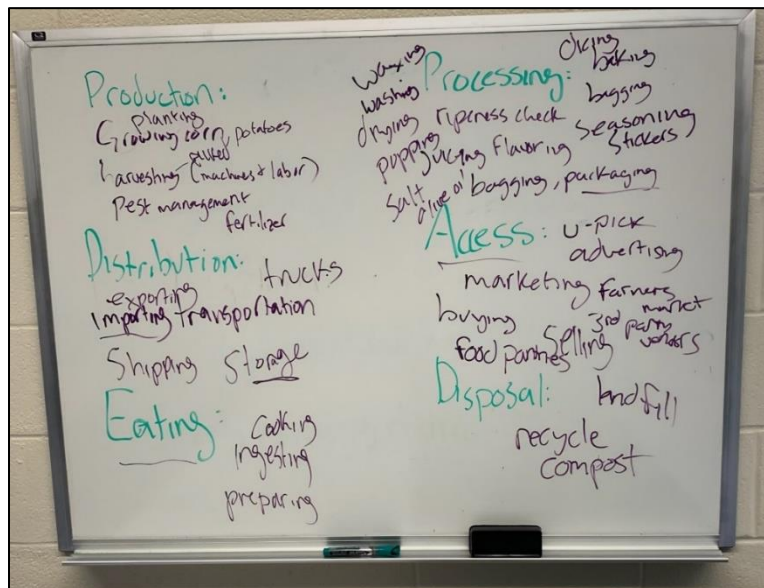 Production:
planting
Growing corn, potatoes
harvesting (machines & labor)
Pest management
fertilizer
Distribution:
trucks
exporting
importing transportation
Shipping storage
Eating:
cooking
ingesting
preparing
Processing:
waxing
washing
drying ripeness check
popping juicing flavoring
salt olive oil bagging, packaging
baking
bagging
seasoning
stickers
Access: U-pick
advertising
marketing farmers
market
buying selling 3rd party
vendors
food pantries
Disposal: landfill
recycle
compost